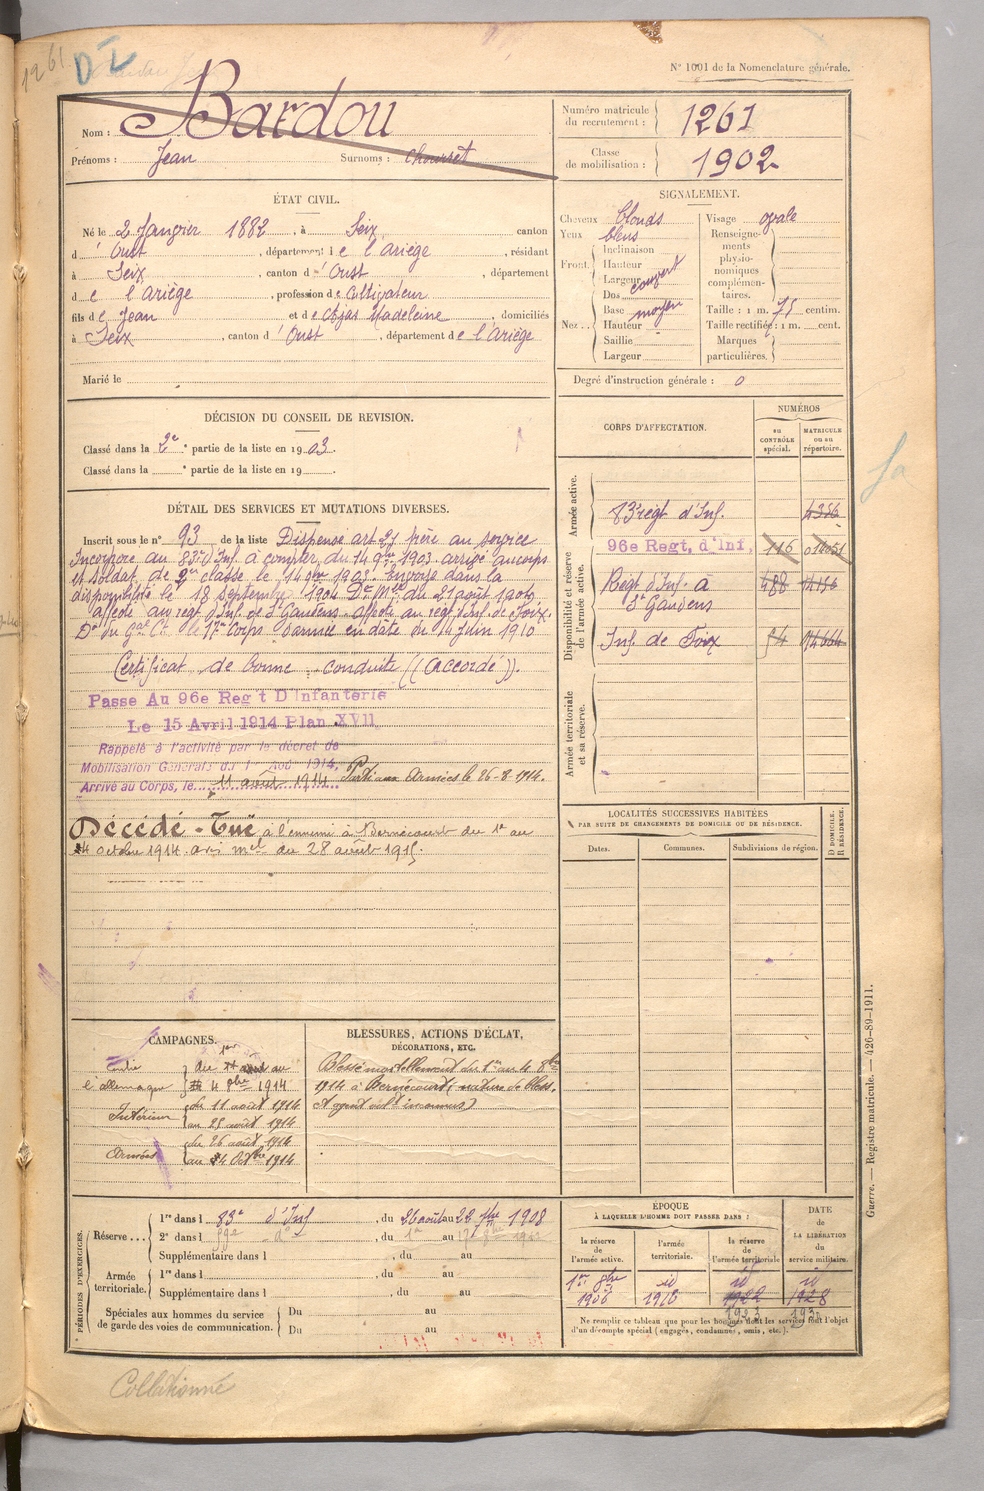 1261
DI
N° 1001 de la Nomenclature générale.
Nom : Bardou
Prénoms : Jean Surnoms :
Numéro matricule du recrutement : 1261
Classe de mobilisation : 1902
ÉTAT CIVIL.
Né le 2 Janvier 1882, à Seix, canton
d'Oust, département de l'Ariège, résidant
à Seix, canton d'Oust, département
de l'Ariège, profession de Cultivateur
fils de Jean et de Ajas Madeleine, domiciliés
à Seix, canton d'Oust, département de l'Ariège
Marié le
SIGNALEMENT.
Cheveux blonds
Yeux bleus
Front. Inclinaison
Hauteur
Largeur couvert
Nez. Dos
Base moyen
Hauteur
Saillie
Largeur
Visage ovale
Renseignements physionomiques complémentaires.
Taille : 1 m. 75 centim.
Taille rectifiée : 1 m. cent.
Marques particulières.
Degré d'instruction générale : 0
DÉCISION DU CONSEIL DE REVISION.
Classé dans la 2e partie de la liste en 1903.
Classé dans la e partie de la liste en 19
DÉTAIL DES SERVICES ET MUTATIONS DIVERSES.
Inscrit sous le n° 93 de la liste Dispensé art. 21 frère au service
Incorporé au 83e d'Inf. à compter du 14 9bre 1903. arrivé au corps
et soldat de 2e classe le 14 9bre 1903. Envoyé dans la
disponibilité le 18 Septembre 1904 Don Mle du 21 août 1904
affecté au régt d'Inf. de St Gaudens. affecté au régt d'Inf. de Foix.
Don du Gal Ct le 17e Corps d'armée en date du 14 Juin 1910
Certificat de bonne conduite ((Accordé)).
Passe Au 96e Reg't D'Infanterie
Le 15 Avril 1914 Plan XVII
Rappelé à l'activité par le décret de
Mobilisation Générale du 1 Aoû 1914,
Arrivé au Corps, le 11 août 1914. Parti aux Armées le 26-8-1914.
Décédé - Tué à l'ennemi à Bernécourt du 1er au
4 octobre 1914. avis mel du 28 août 1915.
CORPS D'AFFECTATION.
NUMÉROS
au CONTRÔLE spécial.
MATRICULE ou au répertoire.
Armée active.
83e régt d'Inf.
Disponibilité et réserve de l'armée active.
96e Regt, d'Inf, 116
Régt d'Inf. à St Gaudens 488
Inf. de Foix 54
Armée territoriale et sa réserve.
LOCALITÉS SUCCESSIVES HABITÉES
PAR SUITE DE CHANGEMENTS DE DOMICILE OU DE RÉSIDENCE.
D DOMICILE.
R RÉSIDENCE.
Dates. Communes. Subdivisions de région.
CAMPAGNES.
Contre l'allemagne du 1er au 4 8bre 1914
Intérieur du 11 août 1914
au 25 août 1914
Armées du 26 août 1914
au 4 Octbre 1914
BLESSURES, ACTIONS D'ÉCLAT,
DÉCORATIONS, ETC.
Blessé mortellement du 1er au 4 8bre
1914 à Bernécourt (nature de bless.
et agent vult inconnus)
PÉRIODES D'EXERCICES.
Réserve... 1re dans l 83e d'Inf, du 26 août au 22 7bre 1908
2e dans l 59e do, du 1er au 17
Supplémentaire dans l, du au
Armée territoriale. 1re dans l, du au
Supplémentaire dans l, du au
Spéciales aux hommes du service
de garde des voies de communication. Du au
Du au
ÉPOQUE
À LAQUELLE L'HOMME DOIT PASSER DANS :
la réserve de l'armée active.
l'armée territoriale.
la réserve de l'armée territoriale
DATE de LA LIBÉRATION du service militaire.
1er 9bre 1906
id 1916
id 1922
id 1928
1923
Ne remplir ce tableau que pour les hommes dont les services font l'objet
d'un décompte spécial (engagés, condamnés, omis, etc.).
Guerre. — Registre matricule. — 426-89-1911.
Collationné